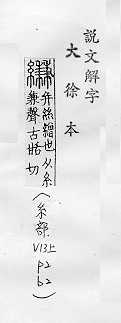 説文解字
大徐本
縑 并絲繒也从糸
兼聲古甜切
(糸部
V13上
P2
b2)